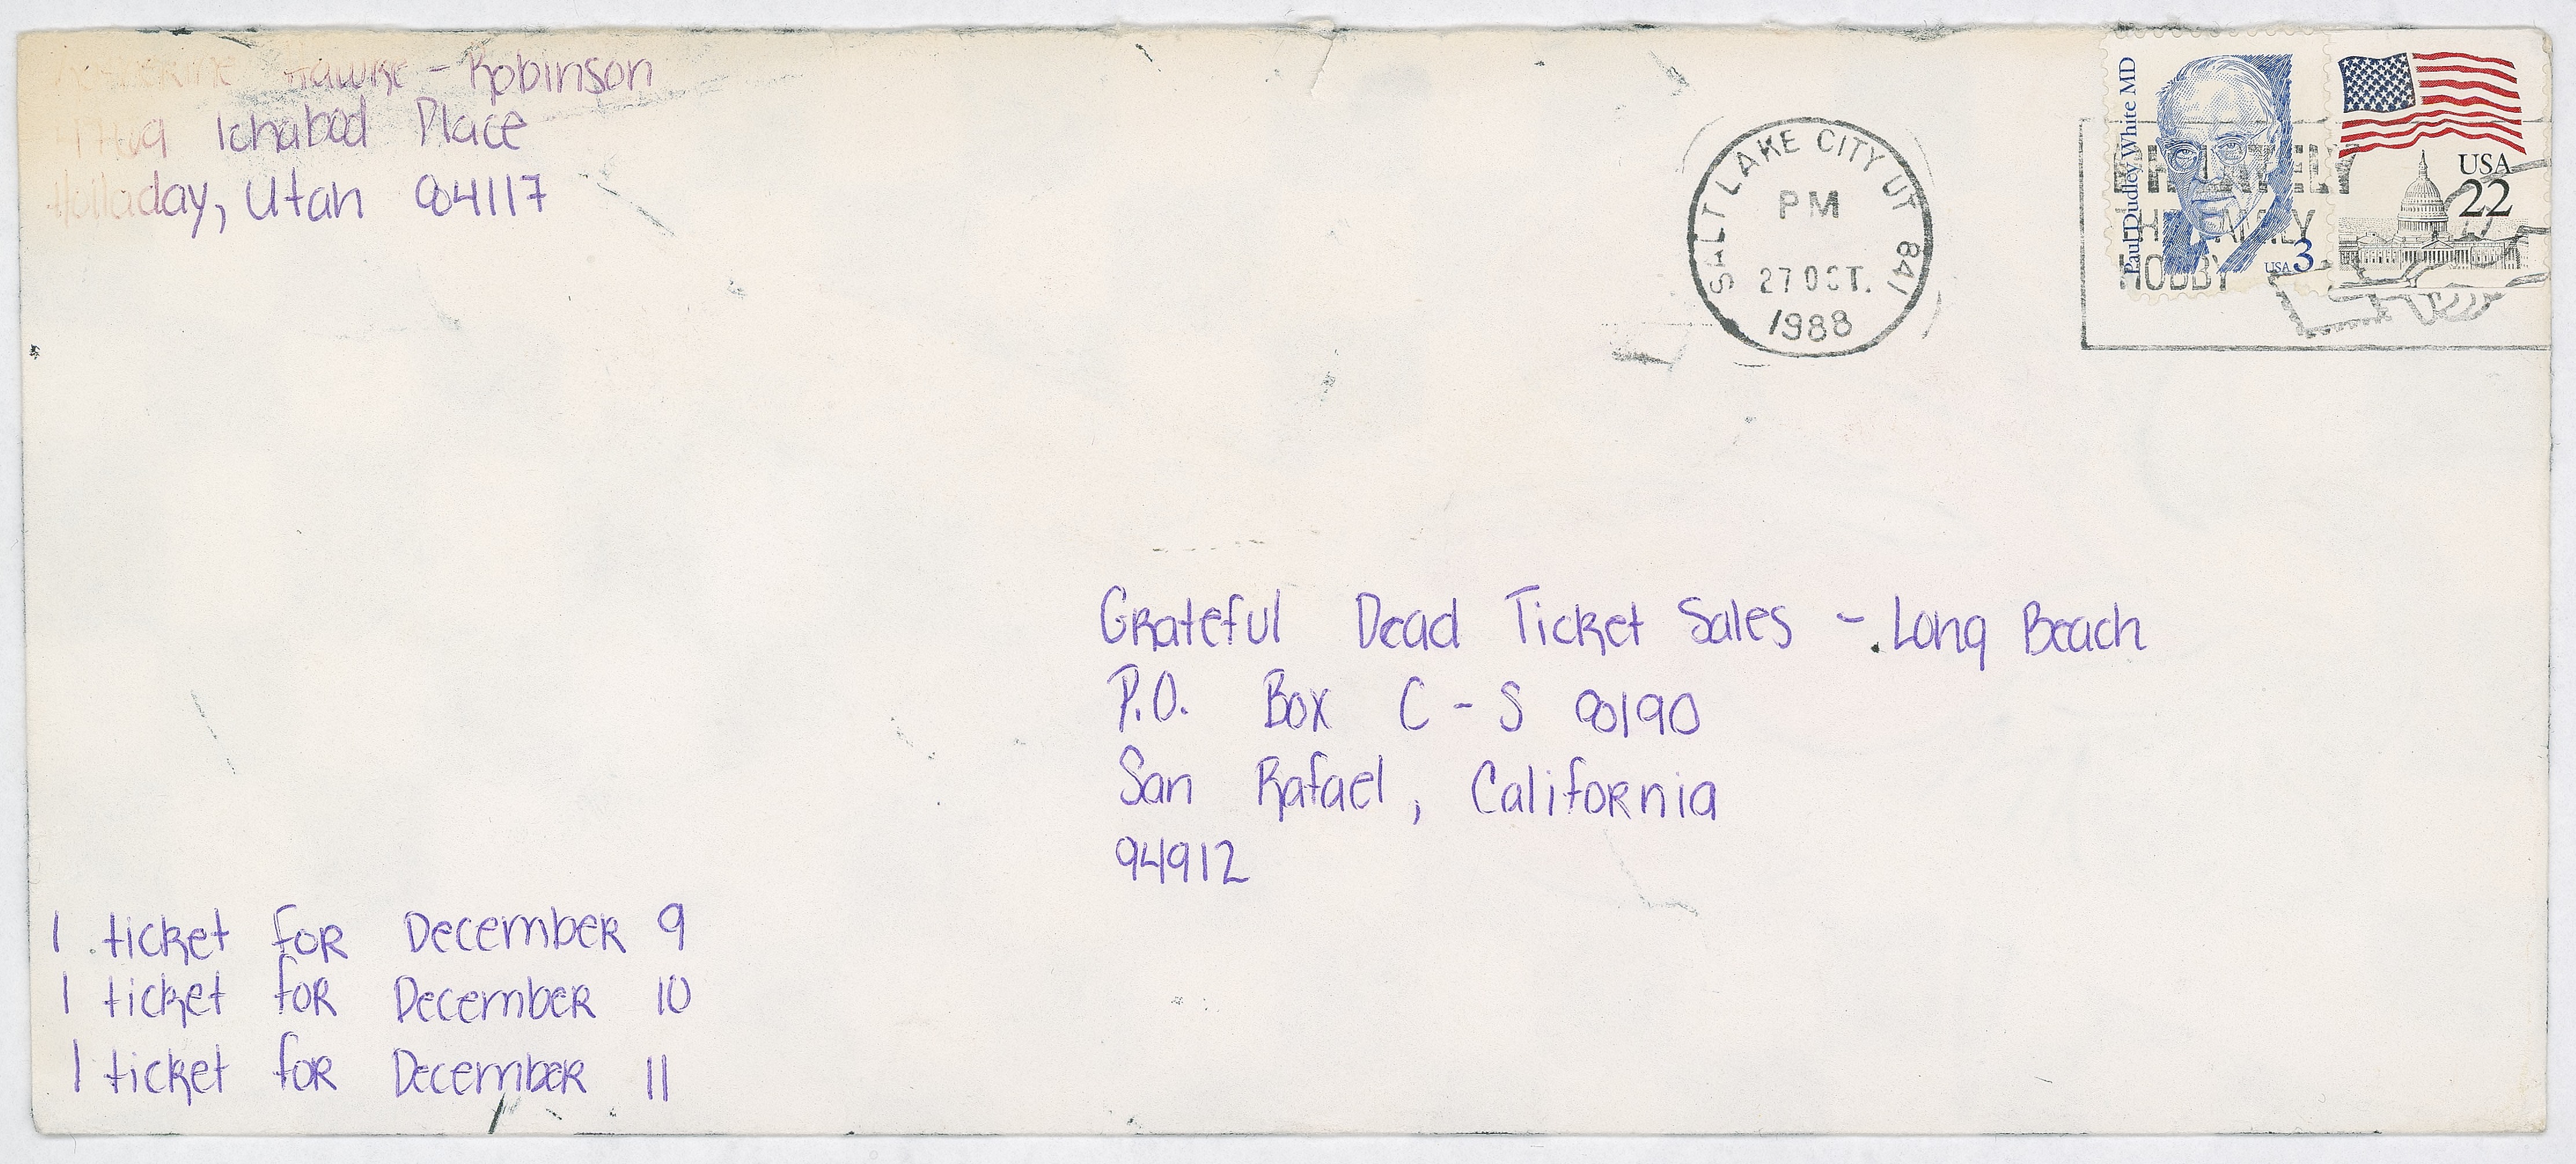 Hawke - Robinson
Ichabod Place
Holladay, Utah 84117
SALT LAKE CITY UT 841
PM
27 OCT.
1988
PHILATELY
THE FAMILY
HOBBY
Paul Dudley White MD
USA 3
USA
22
Grateful Dead Ticket Sales - Long Beach
P.O. Box C-S 8190
San Rafael, California
94912
1 ticket for December 9
1 ticket for December 10
1 ticket for December 11